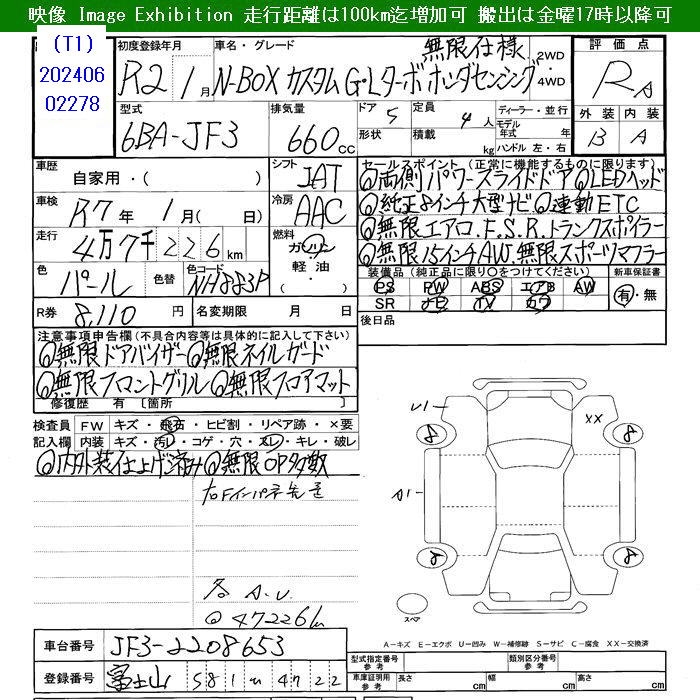 映像 Image Exhibition 走行距離は100km迄増加可 搬出は金曜17時以降可
(T1)
202406
02278
初度登録年月
R2年 1月
車名・グレード
無限仕様
N-BOX カスタム G・Lターボ ホンダセンシング
2WD
4WD
評価点
RA
型式
6BA-JF3
排気量
660cc
ドア 5
形状
定員 4人
積載 kg
ディーラー・並行
モデル年式 年
ハンドル 左・右
外装 内装
B A
車歴
自家用・( )
シフト
IAT
車検
R7年 1月( 日)
冷房
AAC
走行
4万7千226km
燃料
ガソリン
軽油・
色
パール
色替
色コード
NH883P
R券 8,110円
名変期限 月 日
セールスポイント (正常に機能するものに限ります)
◎両側パワースライドドア ◎LEDヘッド
◎純正8インチ大型ナビ ◎連動ETC
◎無限エアロ.F.S.R.トランクスポイラー
◎無限15インチAW.無限スポーツマフラー
装備品 (純正品に限り○をつけてください)
PS PW ABS エアB AW
SR ナビ TV カワ
新車保証書
有・無
後日品
注意事項申告欄(不具合内容等は具体的に記入して下さい)
◎無限ドアバイザー ◎無限テイルガード
◎無限フロントグリル ◎無限フロアマット
修復歴 有 [箇所 ]
検査員記入欄
FW キズ・飛石・ヒビ割・リペア跡・×要
内装 キズ・汚レ・コゲ・穴・スレ・キレ・破レ
◎内外装仕上げ済み ◎無限OP多数
各 A.U
@ 47226km
U1
XX
A1
8
8
8
8
スペア
A-キズ E-エクボ U-凹み W-補修跡 S-サビ C-腐食 XX-交換済
車台番号 JF3-2208653
登録番号 富士山 581 47 22
型式指定番号 参考
類別区分番号 参考
車庫証明用 参考
長さ cm
幅 cm
高さ cm